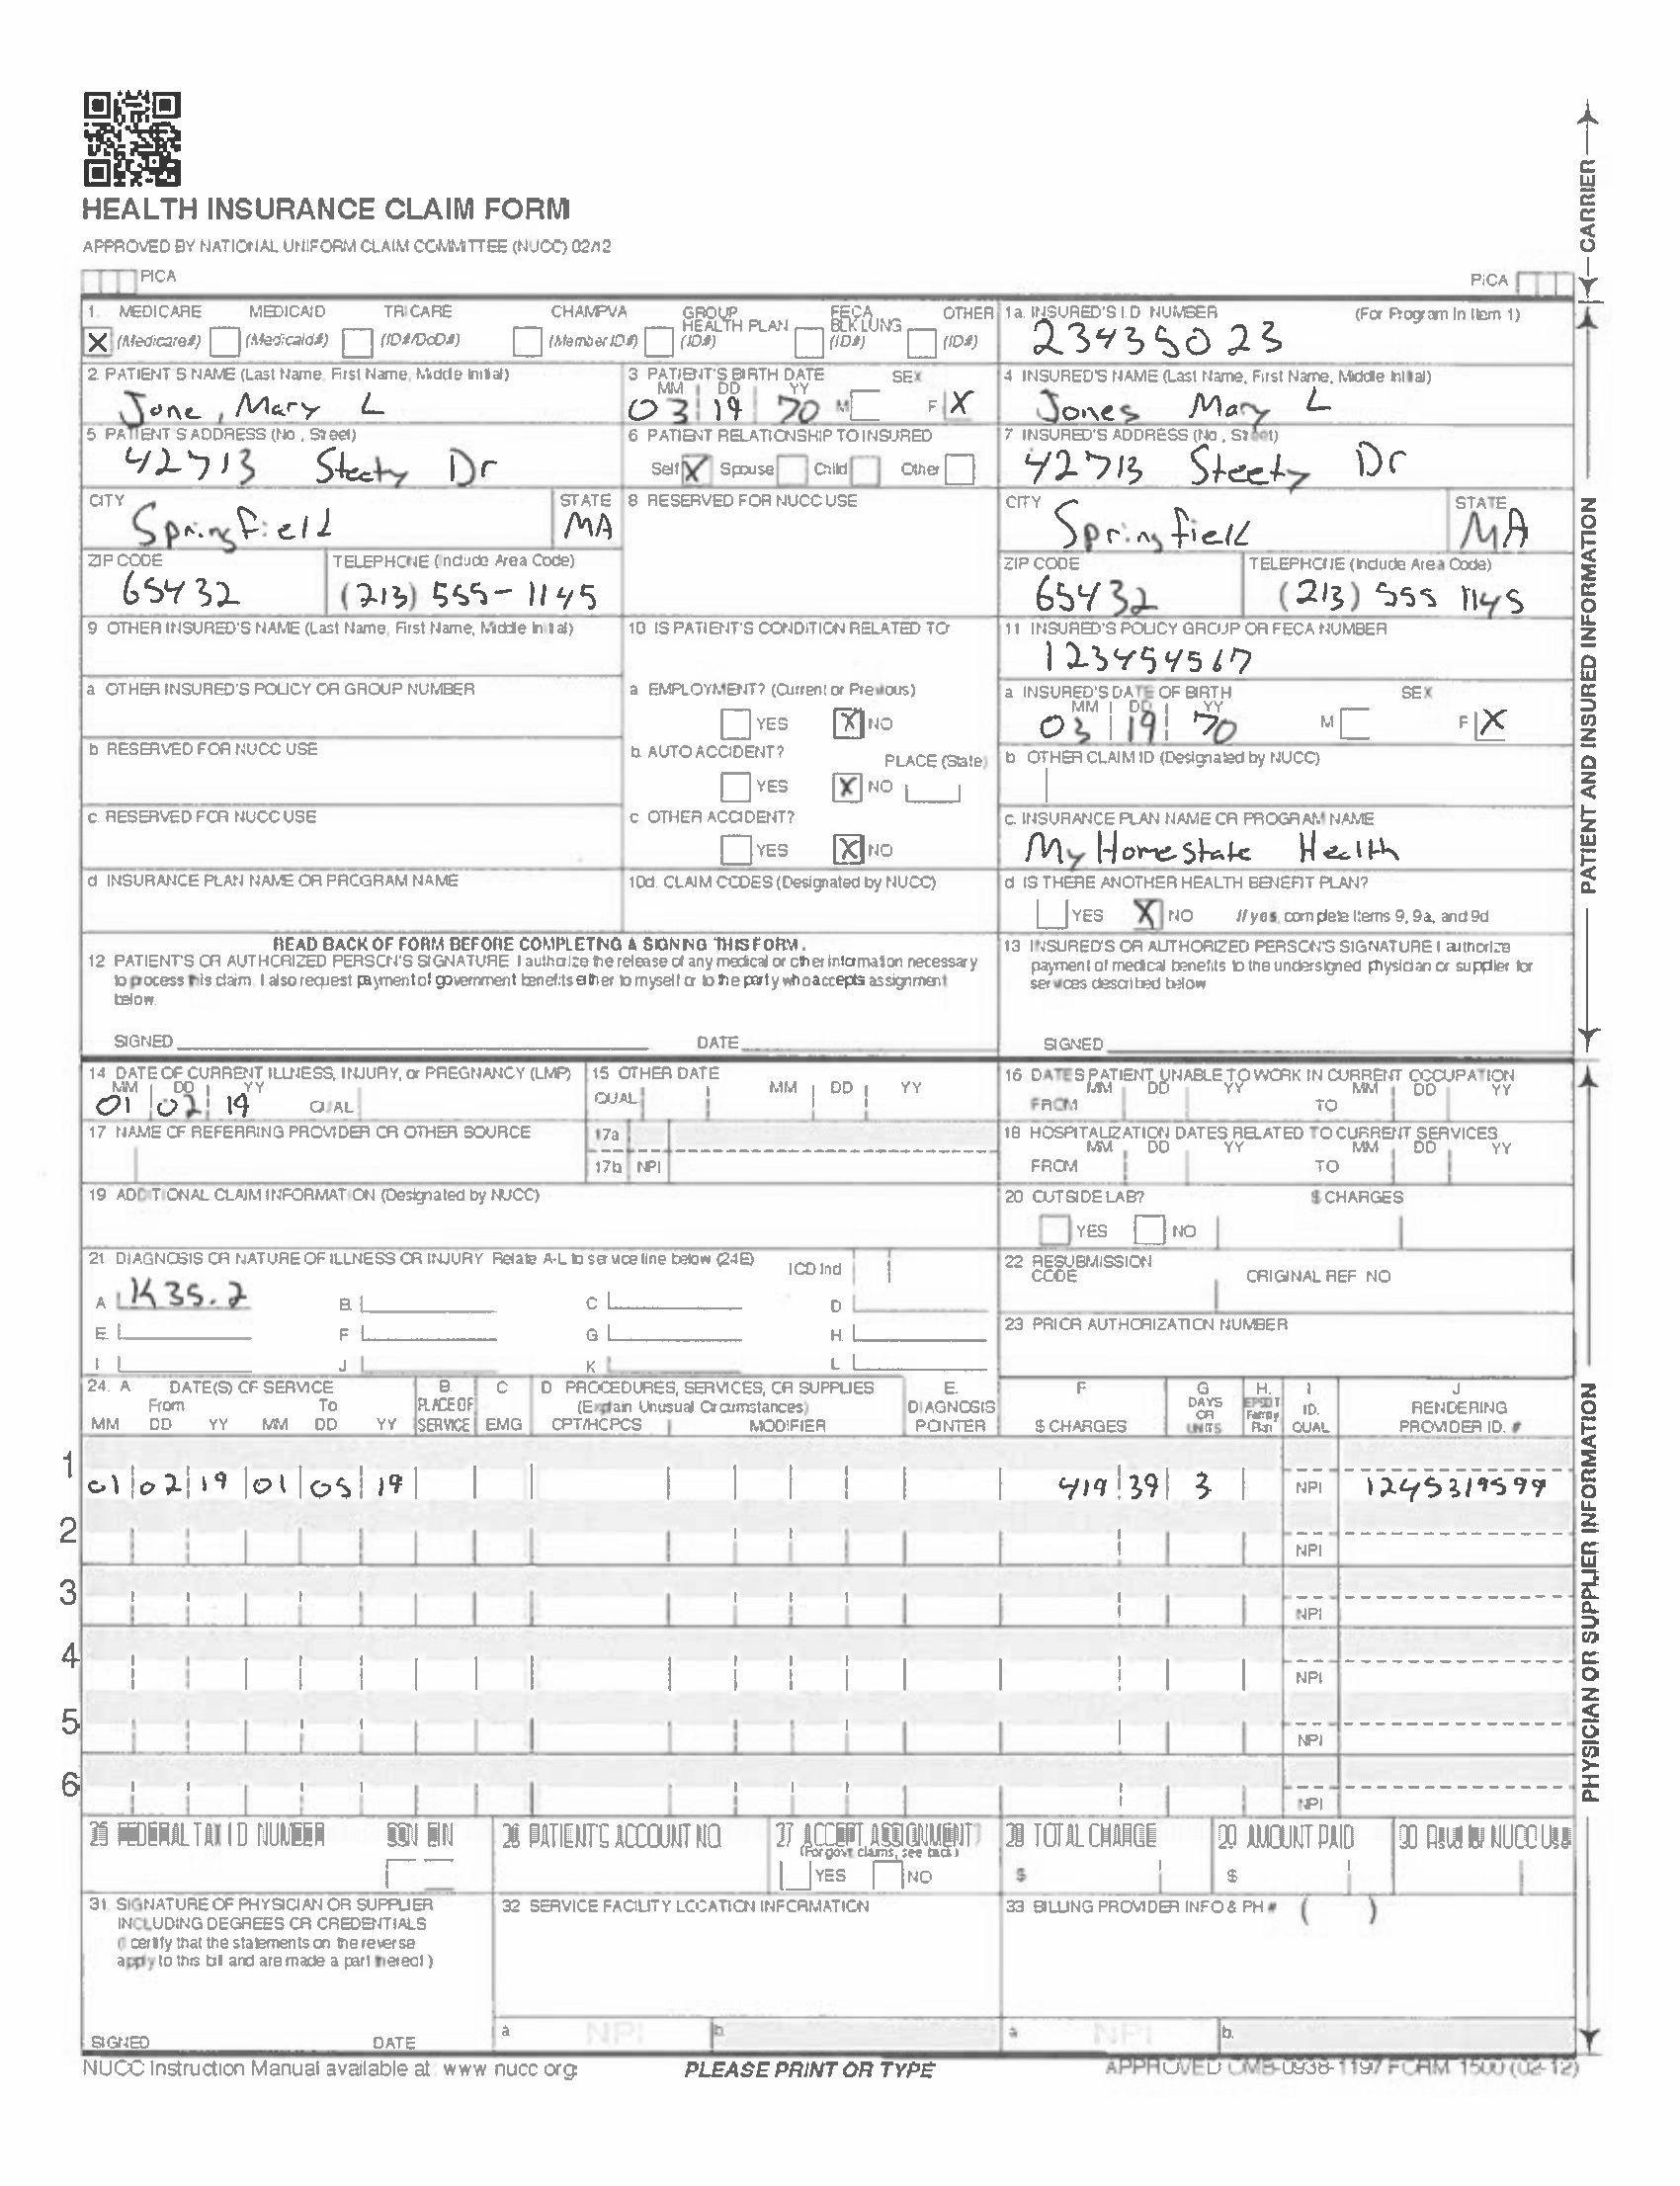 HEALTH INSURANCE CLAIM FORM
APPROVED BY NATIONAL UNIFORM CLAIM COMMITTEE (NUCC) 02/12
PICA
PICA
CARRIER
1. MEDICARE MEDICAID TRICARE CHAMPVA GROUP HEALTH PLAN FECA BLK LUNG OTHER
X (Medicare#) (Medicaid#) (ID#/DoD#) (Member ID#) (ID#) (ID#) (ID#)
1a. INSURED'S I.D. NUMBER (For Program in Item 1)
23435023
2 PATIENT'S NAME (Last Name, First Name, Middle Initial)
Jone, Mary L
3 PATIENT'S BIRTH DATE SEX
MM DD YY
03 19 70 M F X
4 INSURED'S NAME (Last Name, First Name, Middle Initial)
Jones Mary L
5 PATIENT'S ADDRESS (No, Street)
42713 Steety Dr
6 PATIENT RELATIONSHIP TO INSURED
Self X Spouse Child Other
7 INSURED'S ADDRESS (No, Street)
42713 Steety Dr
CITY STATE
Springfield MA
8 RESERVED FOR NUCC USE
CITY STATE
Springfield MA
ZIP CODE TELEPHONE (Include Area Code)
65432 (213) 555-1145
ZIP CODE TELEPHONE (Include Area Code)
65432 (213) 555 1145
9 OTHER INSURED'S NAME (Last Name, First Name, Middle Initial)
10 IS PATIENT'S CONDITION RELATED TO
11 INSURED'S POLICY GROUP OR FECA NUMBER
123454567
a OTHER INSURED'S POLICY OR GROUP NUMBER
a EMPLOYMENT? (Current or Previous)
YES X NO
a INSURED'S DATE OF BIRTH SEX
MM DD YY
03 19 70 M F X
b RESERVED FOR NUCC USE
b AUTO ACCIDENT? PLACE (State)
YES X NO
b OTHER CLAIM ID (Designated by NUCC)
c RESERVED FOR NUCC USE
c OTHER ACCIDENT?
YES X NO
c. INSURANCE PLAN NAME OR PROGRAM NAME
My Homestate Health
d INSURANCE PLAN NAME OR PROGRAM NAME
10d. CLAIM CODES (Designated by NUCC)
d IS THERE ANOTHER HEALTH BENEFIT PLAN?
YES X NO If yes, complete Items 9, 9a, and 9d
READ BACK OF FORM BEFORE COMPLETING & SIGNING THIS FORM.
12 PATIENT'S OR AUTHORIZED PERSON'S SIGNATURE I authorize the release of any medical or other information necessary
to process this claim. I also request payment of government benefits either to myself or to the party who accepts assignment
below.
SIGNED DATE
13 INSURED'S OR AUTHORIZED PERSON'S SIGNATURE I authorize
payment of medical benefits to the undersigned physician or supplier for
services described below
SIGNED
PATIENT AND INSURED INFORMATION
14 DATE OF CURRENT ILLNESS, INJURY, or PREGNANCY (LMP)
MM DD YY
01 02 19 QUAL
15 OTHER DATE
QUAL MM DD YY
16 DATES PATIENT UNABLE TO WORK IN CURRENT OCCUPATION
MM DD YY MM DD YY
FROM TO
17 NAME OF REFERRING PROVIDER OR OTHER SOURCE
17a
17b NPI
18 HOSPITALIZATION DATES RELATED TO CURRENT SERVICES
MM DD YY MM DD YY
FROM TO
19 ADDITIONAL CLAIM INFORMATION (Designated by NUCC)
20 OUTSIDE LAB? $ CHARGES
YES NO
21 DIAGNOSIS OR NATURE OF ILLNESS OR INJURY Relate A-L to service line below (24E) ICD Ind
A K35.2 B. C D
E. F G H.
I J K L
22 RESUBMISSION CODE ORIGINAL REF NO
23 PRIOR AUTHORIZATION NUMBER
24. A DATE(S) OF SERVICE B. C D PROCEDURES, SERVICES, OR SUPPLIES E. F G H. I J
From To PLACE OF (Explain Unusual Circumstances) DIAGNOSIS DAYS OR EPSDT Family ID. RENDERING
MM DD YY MM DD YY SERVICE EMG CPT/HCPCS MODIFIER POINTER $ CHARGES UNITS Plan QUAL PROVIDER ID. #
1
01 02 19 01 05 19 419 39 3 NPI 1245319599
2
NPI
3
NPI
4
NPI
5
NPI
6
NPI
25 FEDERAL TAX I D NUMBER SSN EIN
26 PATIENT'S ACCOUNT NO.
27 ACCEPT ASSIGNMENT?
(For govt. claims, see back)
YES NO
28 TOTAL CHARGE
$
29 AMOUNT PAID
$
30 Rsvd for NUCC Use
31. SIGNATURE OF PHYSICIAN OR SUPPLIER
INCLUDING DEGREES OR CREDENTIALS
(I certify that the statements on the reverse
apply to this bill and are made a part thereof)
SIGNED DATE
32 SERVICE FACILITY LOCATION INFORMATION
a NPI b.
33 BILLING PROVIDER INFO & PH # ( )
a NPI b.
PHYSICIAN OR SUPPLIER INFORMATION
NUCC Instruction Manual available at: www nucc org
PLEASE PRINT OR TYPE
APPROVED OMB-0938-1197 FORM 1500 (02-12)